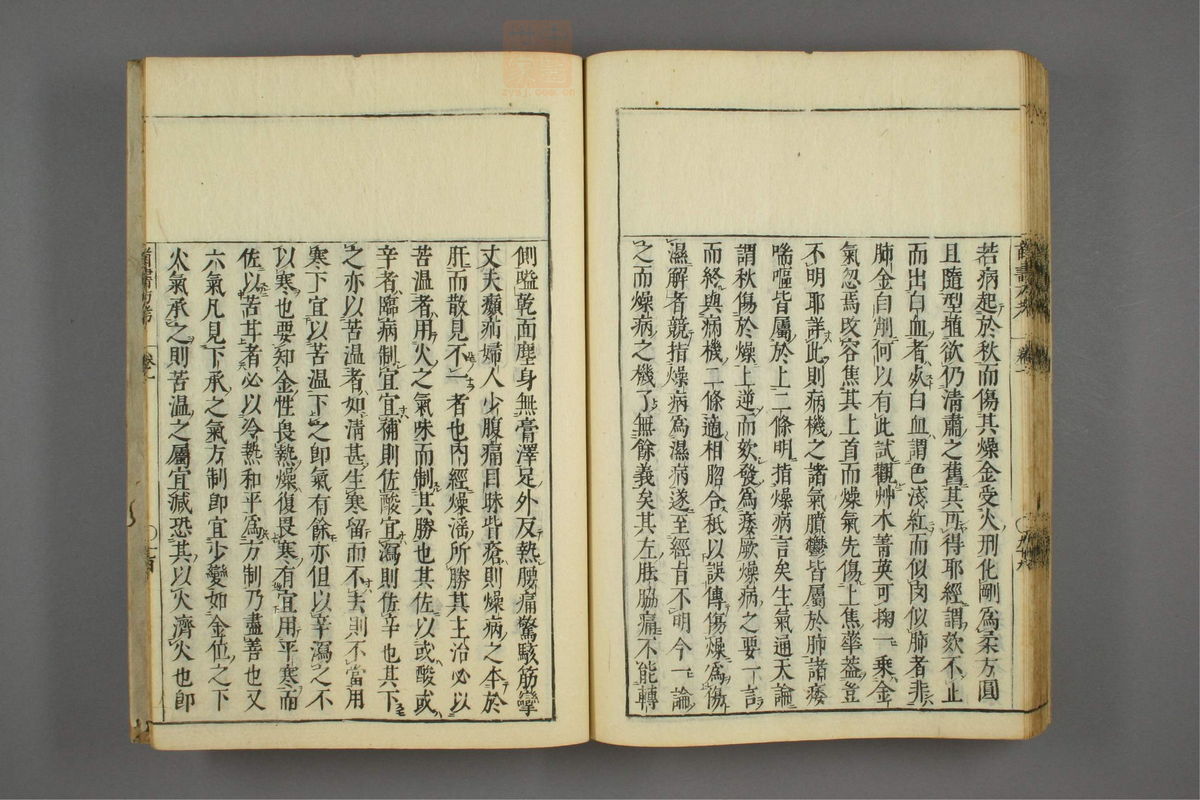 若病起於秋而傷其燥金受火刑化剛為柔方圓
且隨型埴欲仍清肅之舊其可得耶經謂欬不止
而出白血者夾白血謂色淺紅而似肉似肺者非
肺金自削何以有此試觀艸木菁英可掬一乘金
氣忽焉改容焦其上首而燥氣先傷上焦華葢豈
不明耶詳此則病機之諸氣膹鬱皆屬於肺諸痿
喘嘔皆屬於上二條明指燥病言矣生氣通天論
謂秋傷於燥上逆而欬發為痿厥燥病之要一言
而終與病機二條適相脗合秪以誤傳傷燥為傷
濕解者競指燥病為濕病遂至經旨不明今一論
之而燥病之機了無餘義矣其左胠脇痛不能轉
側嗌乾面塵身無膏澤足外反熱腰痛驚駭筋攣
丈夫㿗疝婦人少腹痛目眛眥瘡則燥病之本於
肝而散見不一者也內經燥淫所勝其主治必以
苦溫者用火之氣味而制其勝也其佐以或酸或
辛者臨病制宜宜補則佐酸宜瀉則佐辛也其下
之亦以苦溫者如清甚生寒留而不去則不當用
寒下宜以苦溫下之即氣有餘亦但以辛瀉之不
以寒也要知金性畏熱燥復畏寒有宜用平寒而
佐以苦甘者必以冷熱和平為方制乃盡善也又
六氣凡見下承之氣方制即宜少變如金位之下
火氣承之則苦溫之屬宜減恐其以火濟火也即
卷一
zysj.com.cn